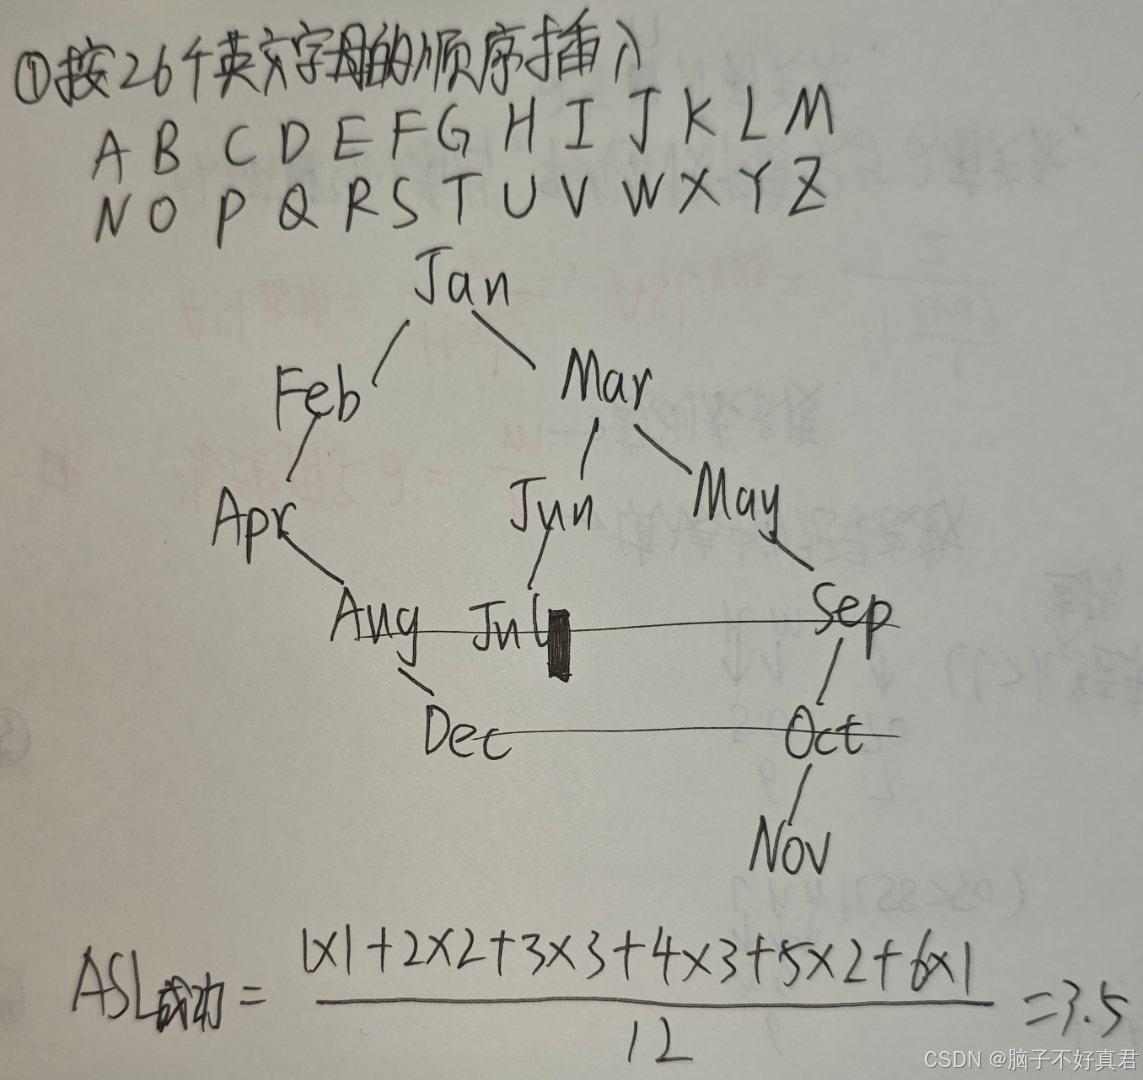 ①按26个英文字母的顺序插入
A B C D E F G H I J K L M
N O P Q R S T U V W X Y Z
Jan
Feb Mar
Apr Jun May
Aug Jul Sep
Dec Oct
Nov
ASL成功 = (1×1+2×2+3×3+4×3+5×2+6×1)/12 =3.5
CSDN @脑子不好真君